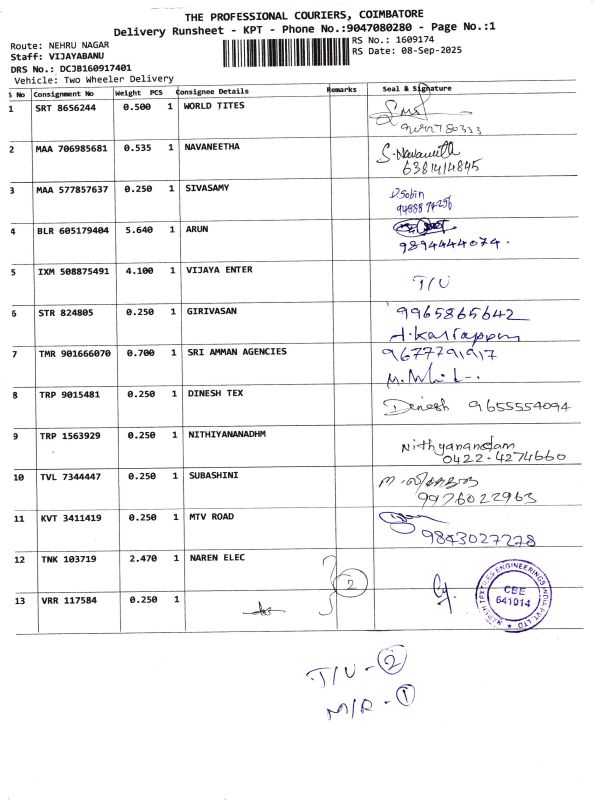 THE PROFESSIONAL COURIERS, COIMBATORE
Delivery Runsheet - KPT - Phone No.:9047080280 - Page No.:1
Route: NEHRU NAGAR
RS No.: 1609174
Staff: VIJAYABANU
RS Date: 08-Sep-2025
DRS No.: DCJB160917401
Vehicle: Two Wheeler Delivery
S No Consignment No Weight PCS Consignee Details Remarks Seal & Signature
1 SRT 8656244 0.500 1 WORLD TITES
2 MAA 706985681 0.535 1 NAVANEETHA S. Navaneeth
6381414845
3 MAA 577857637 0.250 1 SIVASAMY D. Sobin
4 BLR 605179404 5.640 1 ARUN
9894444074.
5 IXM 508875491 4.100 1 VIJAYA ENTER T/U
6 STR 824805 0.250 1 GIRIVASAN 9965865642
7 TMR 901666070 0.700 1 SRI AMMAN AGENCIES 9677791917
8 TRP 9015481 0.250 1 DINESH TEX Dinesh 9655554094
9 TRP 1563929 0.250 1 NITHIYANANADHM Nithyanandam
0422-4274660
10 TVL 7344447 0.250 1 SUBASHINI
9976022963
11 KVT 3411419 0.250 1 MTV ROAD
9843027278
12 TNK 103719 2.470 1 NAREN ELEC
2
CBE
641014
13 VRR 117584 0.250 1
T/U - 2
M/R - 1